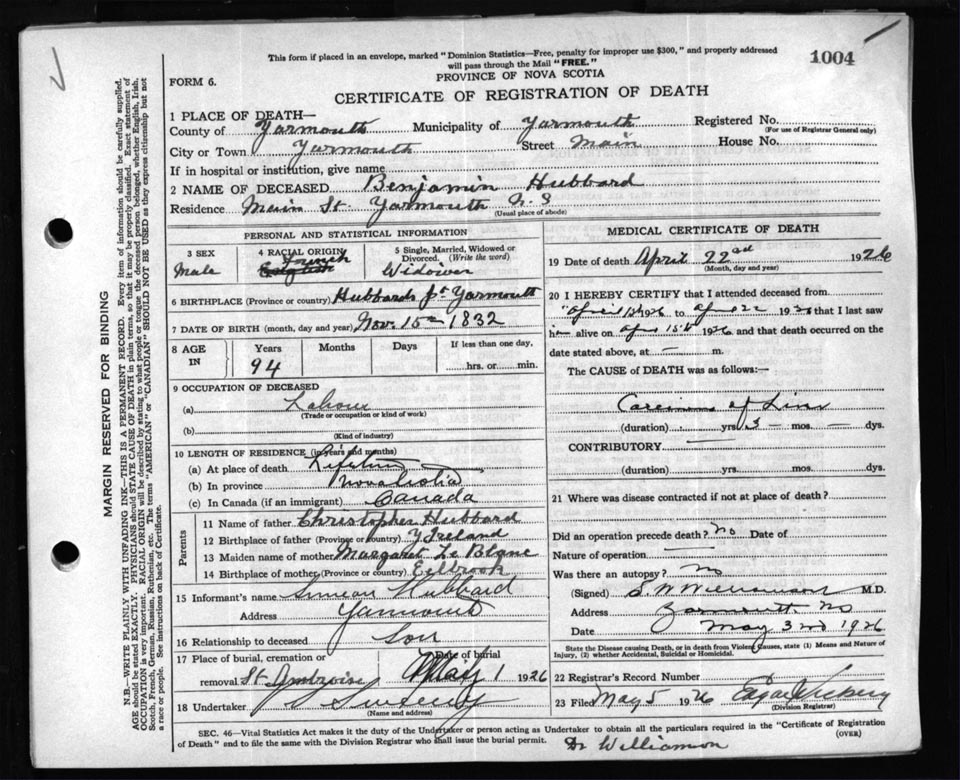 This form if placed in an envelope, marked "Dominion Statistics—Free, penalty for improper use $300," and properly addressed
will pass through the Mail "FREE."
1004
FORM 6.
PROVINCE OF NOVA SCOTIA
CERTIFICATE OF REGISTRATION OF DEATH
1 PLACE OF DEATH—
County of Yarmouth Municipality of Yarmouth Registered No.
(For use of Registrar General only)
City or Town Yarmouth Street Main House No.
If in hospital or institution, give name
2 NAME OF DECEASED Benjamin Hubbard
Residence Main St. Yarmouth N.S
(Usual place of abode)
PERSONAL AND STATISTICAL INFORMATION
3 SEX
Male
4 RACIAL ORIGIN
French
English
5 Single, Married, Widowed or
Divorced. (Write the word)
Widower
6 BIRTHPLACE (Province or country) Hubbards pt Yarmouth
7 DATE OF BIRTH (month, day and year) Nov. 15th 1832
8 AGE
IN
Years
94
Months
Days
If less than one day.
hrs. or min.
9 OCCUPATION OF DECEASED
(a) Labour
(Trade or occupation or kind of work)
(b)
(Kind of industry)
10 LENGTH OF RESIDENCE (in years and months)
(a) At place of death Lifetime
(b) In province Nova Scotia
(c) In Canada (if an immigrant) Canada
Parents
11 Name of father Christopher Hubbard
12 Birthplace of father (Province or country) Ireland
13 Maiden name of mother Margaret Le Blanc
14 Birthplace of mother (Province or country) Eelbrook
15 Informant's name Simeon Hubbard
Address Yarmouth
16 Relationship to deceased Son
17 Place of burial, cremation or
removal St. Ambroise
Date of burial
May 1 1926
18 Undertaker Sweeny
(Name and address)
MEDICAL CERTIFICATE OF DEATH
19 Date of death April 22nd 1926
(Month, day and year)
20 I HEREBY CERTIFY that I attended deceased from
April 1926 to April 22 1926 that I last saw
him alive on Apr 15th 1926, and that death occurred on the
date stated above, at — m.
The CAUSE of DEATH was as follows:—
Carcinoma of
(duration) yrs 3 mos. — dys.
CONTRIBUTORY —
(duration) yrs. mos. dys.
21 Where was disease contracted if not at place of death?
Did an operation precede death? No Date of
Nature of operation —
Was there an autopsy? No
(Signed) Williamson M.D.
Address Yarmouth NS
Date May 3rd 1926
State the Disease causing Death, or in death from Violent Causes, state (1) Means and Nature of
Injury, (2) whether Accidental, Suicidal or Homicidal.
22 Registrar's Record Number
23 Filed May 5 1926 Vickery
(Division Registrar)
SEC. 46—Vital Statistics Act makes it the duty of the Undertaker or person acting as Undertaker to obtain all the particulars required in the "Certificate of Registration
of Death" and to file the same with the Division Registrar who shall issue the burial permit.
(OVER)
Dr Williamson
MARGIN RESERVED FOR BINDING
N.B.—WRITE PLAINLY WITH UNFADING INK—THIS IS A PERMANENT RECORD. Every item of information should be carefully supplied.
AGE should be stated EXACTLY. PHYSICIANS should STATE CAUSE OF DEATH in plain terms, so that it may be properly classified. Exact statement of
OCCUPATION is very important. RACIAL ORIGIN will be described by stating to what people or tongue the deceased person belonged, whether English, Irish,
Scotch, French, German, Russian, Ruthenian, etc. The terms "AMERICAN" or "CANADIAN" SHOULD NOT BE USED as they express citizenship but not
a race or people. See instructions on back of Certificate.